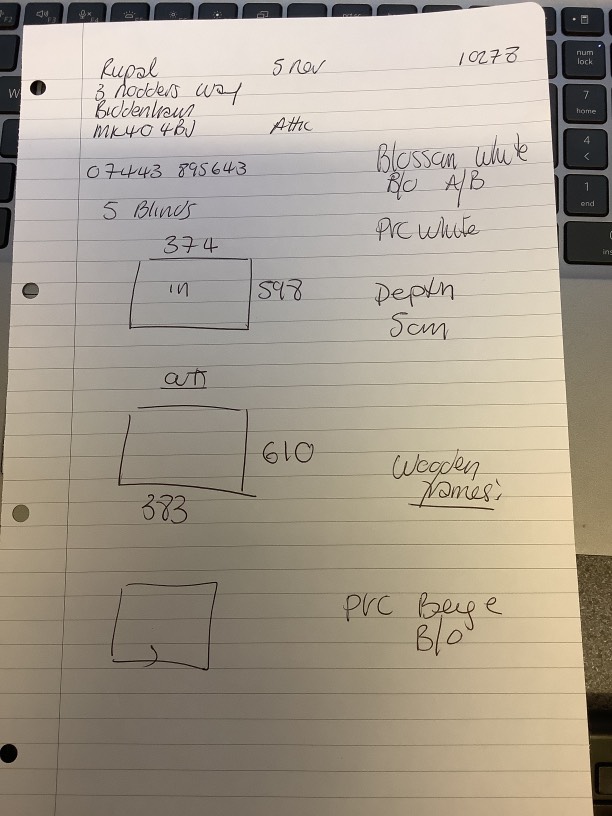 Rupal 5 Nov 10278
3 Nodders Way
Biddenham
MK40 4BJ Attic
07443 895643
Blossom White
B/O A/B
5 Blinds
PVC White
374
in 598
Depth
5cm
out
610
Wooden
383
PVC Beige
B/O
num
lock
7
home
4
1
end